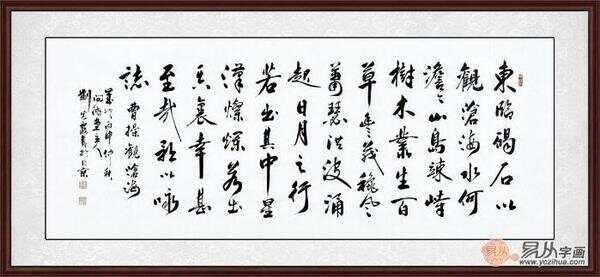 東臨碣石以
觀滄海水何
澹々山島竦峙
樹木叢生百
草豐茂穐風
蕭瑟洪波涌
起日月之行
若出其中星
漢燦爛若出
其裏幸甚
至哉歌以咏
誌 曹操觀滄海
歲次丙申仲秋
劉 書於北京
易从字画
www.yczihua.com